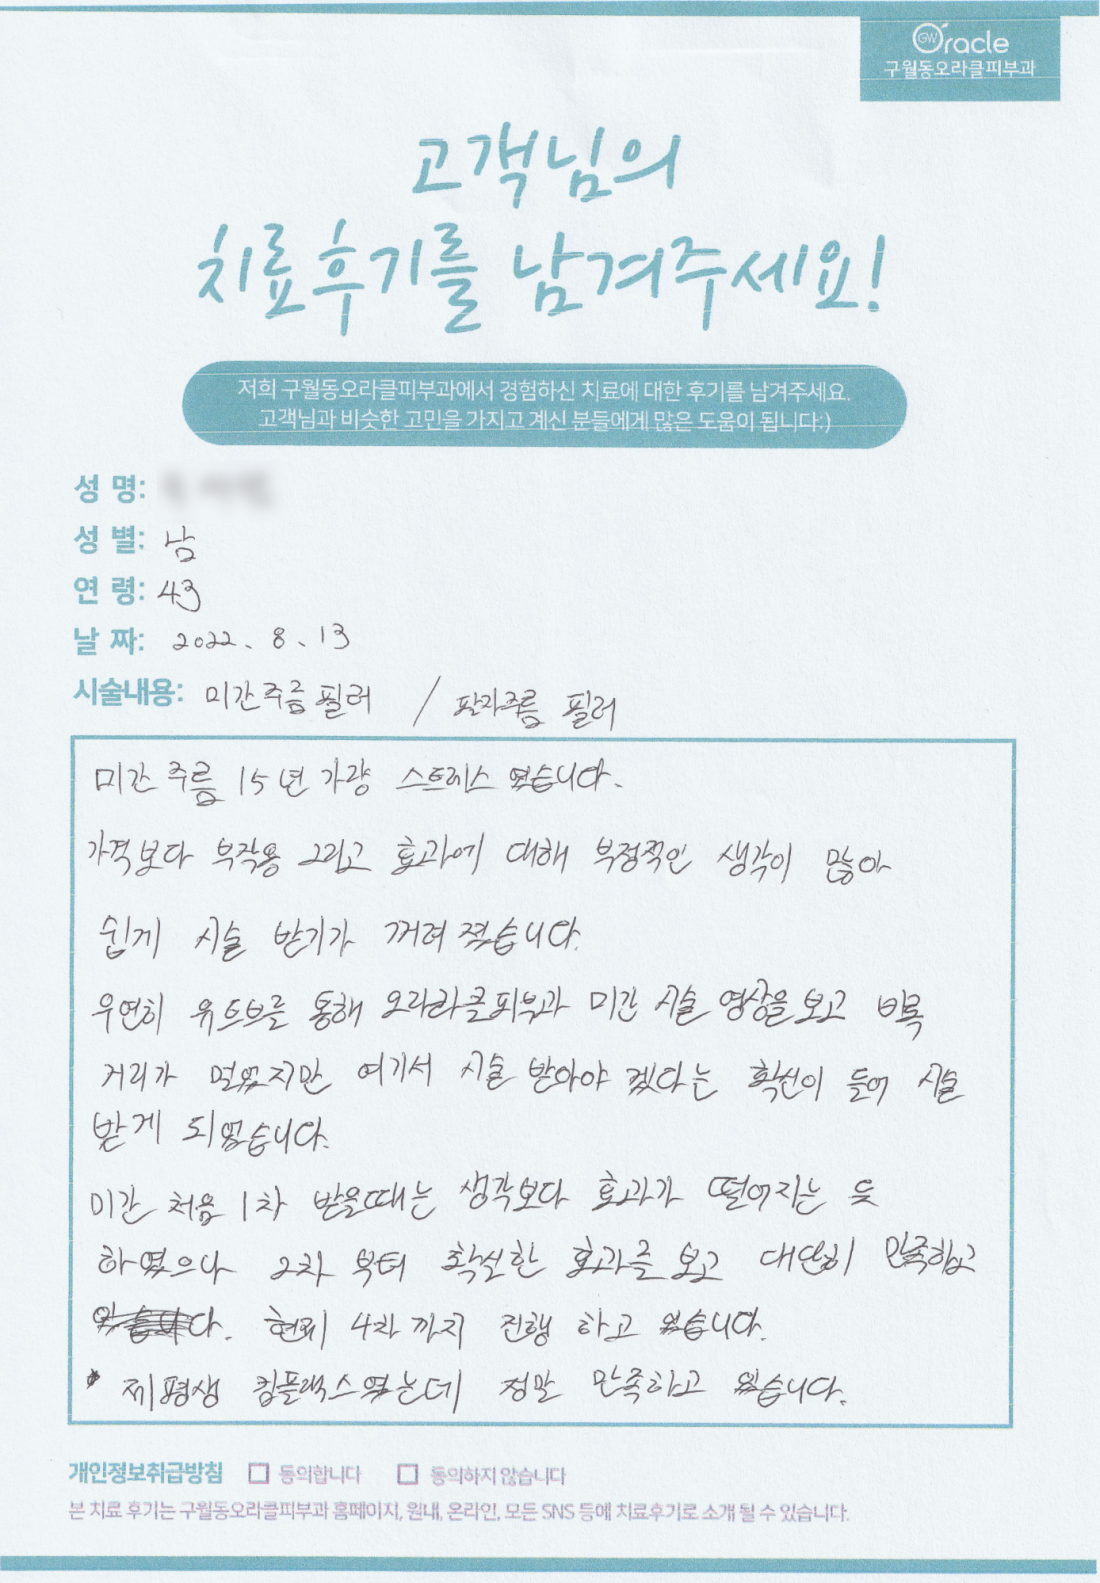 GW Oracle
구월동오라클피부과
고객님의
치료후기를 남겨주세요!
저희 구월동오라클피부과에서 경험하신 치료에 대한 후기를 남겨주세요.
고객님과 비슷한 고민을 가지고 계신 분들에게 많은 도움이 됩니다:)
성 명:
성 별: 남
연 령: 43
날 짜: 2022. 8. 13
시술내용: 미간주름 필러 / 팔자주름 필러
미간 주름 15년 가량 스트레스 였습니다.
가격보다 부작용 그리고 효과에 대해 부정적인 생각이 많아
쉽게 시술 받기가 꺼려 졌습니다.
우연히 유트브를 통해 오라클피부과 미간 시술 영상을 보고 비록
거리가 멀었지만 여기서 시술 받아야 겠다는 확신이 들어 시술
받게 되었습니다.
미간 처음 1차 받을때는 생각보다 효과가 떨어지는 듯
하였으나 2차 부터 확실한 효과를 보고 대단히 만족하고
있습니다. 현재 4차 까지 진행 하고 있습니다.
제평생 컴플렉스였는데 정말 만족하고 있습니다.
개인정보취급방침 □ 동의합니다 □ 동의하지 않습니다
본 치료 후기는 구월동오라클피부과 홈페이지, 원내, 온라인, 모든 SNS 등에 치료후기로 소개 될 수 있습니다.